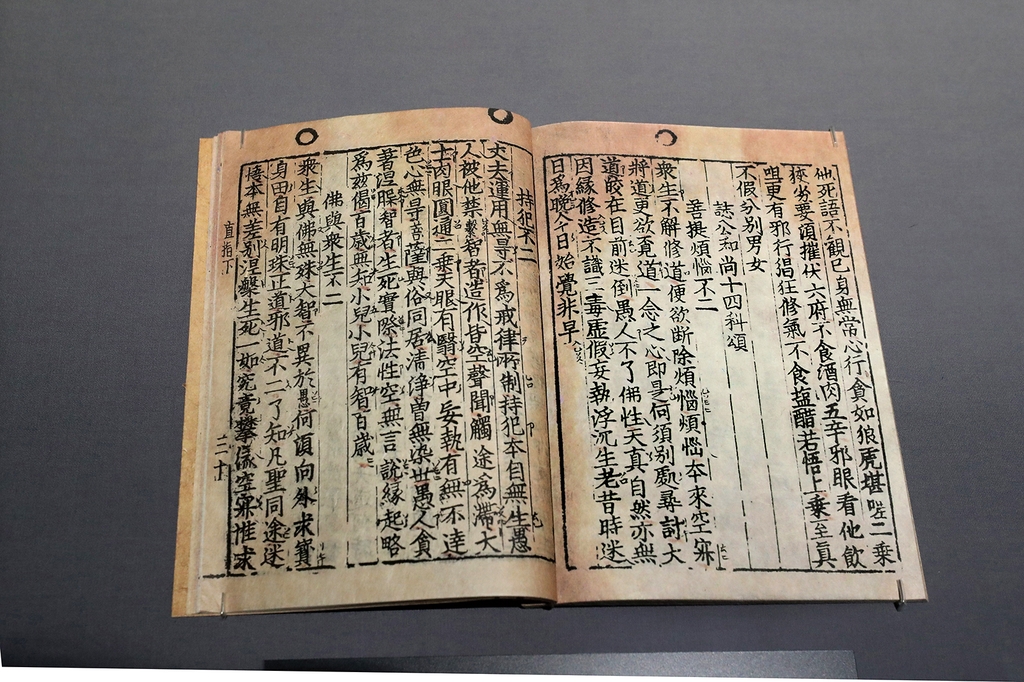 他死語不觀己身無常心行貪如狼虎堪嗟二乗
狹劣要湏摧伏六府不食酒肉五辛邪眼看他飮
咀更有邪行猖狂修氣不食塩醋若悟上乗至真
不假分別男女
誌公和尚十四科頌
菩提煩惱不二
衆生不解修道便欲断除煩惱煩惱本來空寂
將道更欲覔道一念之心即是何須別處尋討大
道皎在目前迷倒愚人不了佛性天真自然亦無
因緣修造不識三毒虛假妄執浮沉生老昔時迷
日爲晚今日始覺非早
持犯不二
丈夫運用無导不爲戒律所制持犯本自無生愚
人被他禁繫智者造作皆空聲聞觸途爲滯大
士肉眼圓通二乗天眼有翳空中妄執有無不達
色心無导菩薩與俗同居清浄曽無染世愚人貪
著涅槃智者生死實際法性空無言說緣起略
爲玆偈百歲無知小兒小兒有智百歲
佛與衆生不二
衆生與佛無殊大智不異於愚何須向外求寳
身田自有明珠正道邪道不二了知凡聖同途迷
悟本無差別涅槃生死一如究竟攀緣空寂惟求
直指下
二十